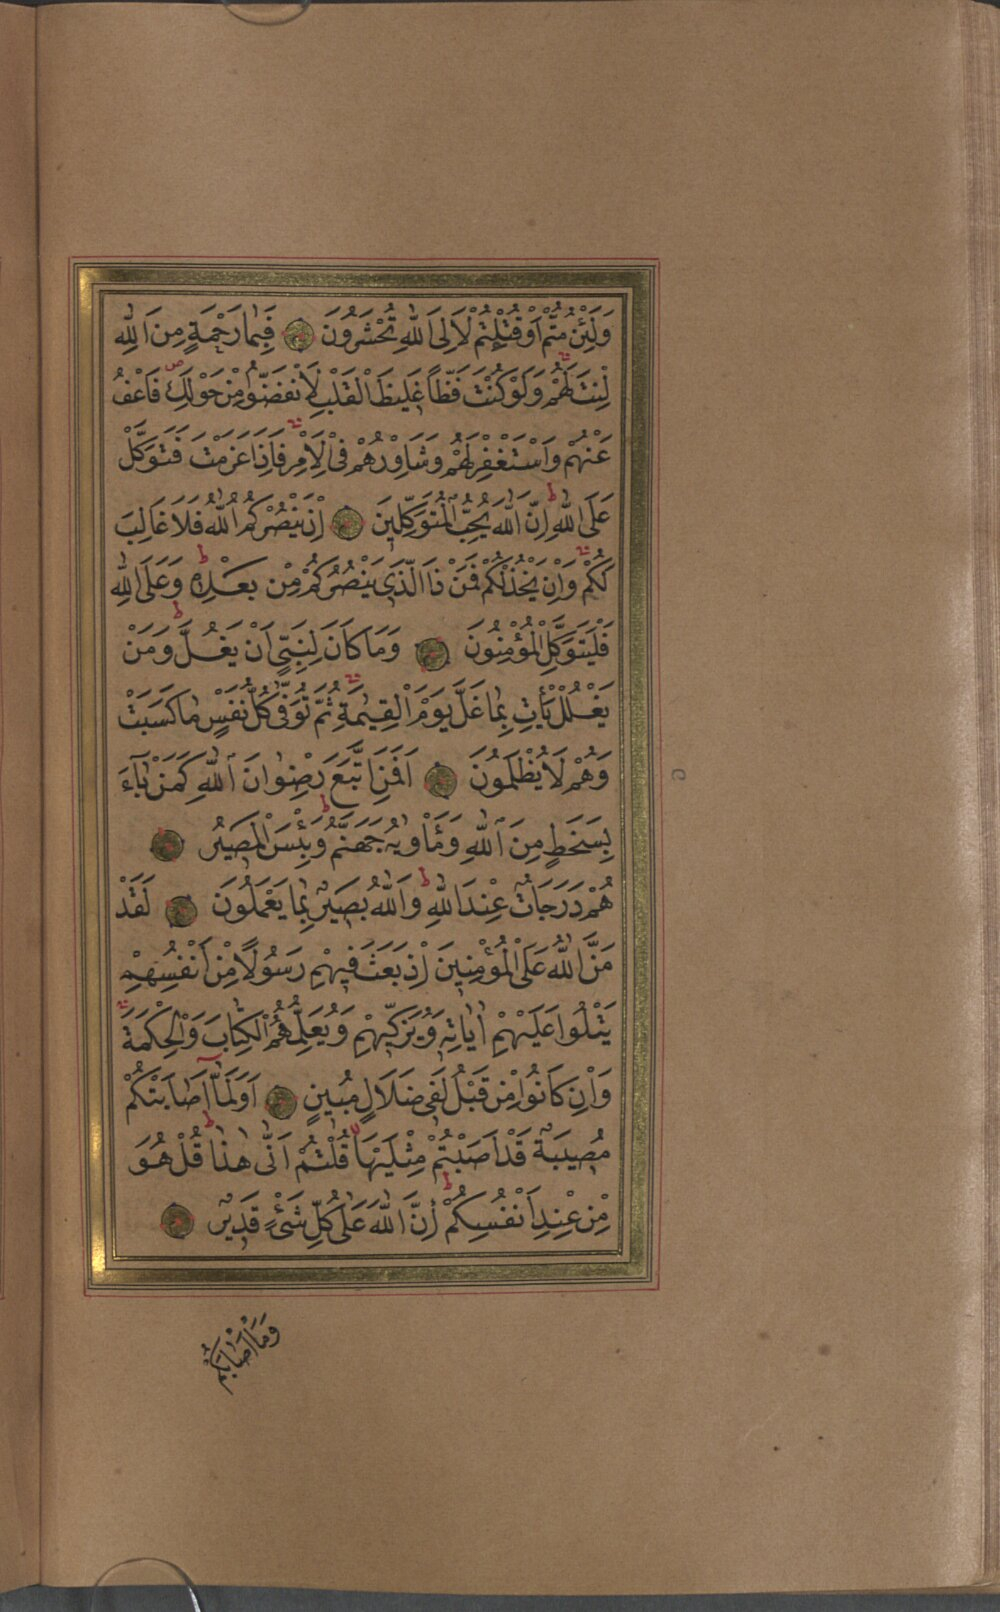 وَلَئِنْ مُتُّمْ اَوْ قُتِلْتُمْ لَاِلَى اللّٰهِ تُحْشَرُونَ ۝ فَبِمَا رَحْمَةٍ مِنَ اللّٰهِ
لِنْتَ لَهُمْ وَلَوْ كُنْتَ فَظًّا غَلِيظَ الْقَلْبِ لَانْفَضُّوا مِنْ حَوْلِكَ فَاعْفُ
عَنْهُمْ وَاسْتَغْفِرْ لَهُمْ وَشَاوِرْهُمْ فِى الْاَمْرِ فَاِذَا عَزَمْتَ فَتَوَكَّلْ
عَلَى اللّٰهِ اِنَّ اللّٰهَ يُحِبُّ الْمُتَوَكِّلِينَ ۝ اِنْ يَنْصُرْكُمُ اللّٰهُ فَلَا غَالِبَ
لَكُمْ وَاِنْ يَخْذُلْكُمْ فَمَنْ ذَا الَّذِى يَنْصُرُكُمْ مِنْ بَعْدِهِ وَعَلَى اللّٰهِ
فَلْيَتَوَكَّلِ الْمُؤْمِنُونَ ۝ وَمَا كَانَ لِنَبِىٍّ اَنْ يَغُلَّ وَمَنْ
يَغْلُلْ يَأْتِ بِمَا غَلَّ يَوْمَ الْقِيٰمَةِ ثُمَّ تُوَفّٰى كُلُّ نَفْسٍ مَا كَسَبَتْ
وَهُمْ لَا يُظْلَمُونَ ۝ اَفَمَنِ اتَّبَعَ رِضْوَانَ اللّٰهِ كَمَنْ بَاءَ
بِسَخَطٍ مِنَ اللّٰهِ وَمَأْوٰيهُ جَهَنَّمُ وَبِئْسَ الْمَصِيرُ ۝
هُمْ دَرَجَاتٌ عِنْدَ اللّٰهِ وَاللّٰهُ بَصِيرٌ بِمَا يَعْمَلُونَ ۝ لَقَدْ
مَنَّ اللّٰهُ عَلَى الْمُؤْمِنِينَ اِذْ بَعَثَ فِيهِمْ رَسُولًا مِنْ اَنْفُسِهِمْ
يَتْلُوا عَلَيْهِمْ اٰيَاتِهِ وَيُزَكِّيهِمْ وَيُعَلِّمُهُمُ الْكِتَابَ وَالْحِكْمَةَ
وَاِنْ كَانُوا مِنْ قَبْلُ لَفِى ضَلَالٍ مُبِينٍ ۝ اَوَلَمَّا اَصَابَتْكُمْ
مُصِيبَةٌ قَدْ اَصَبْتُمْ مِثْلَيْهَا قُلْتُمْ اَنّٰى هٰذَا قُلْ هُوَ
مِنْ عِنْدِ اَنْفُسِكُمْ اِنَّ اللّٰهَ عَلٰى كُلِّ شَىْءٍ قَدِيرٌ ۝
وَمَا اَصَابَكُمْ